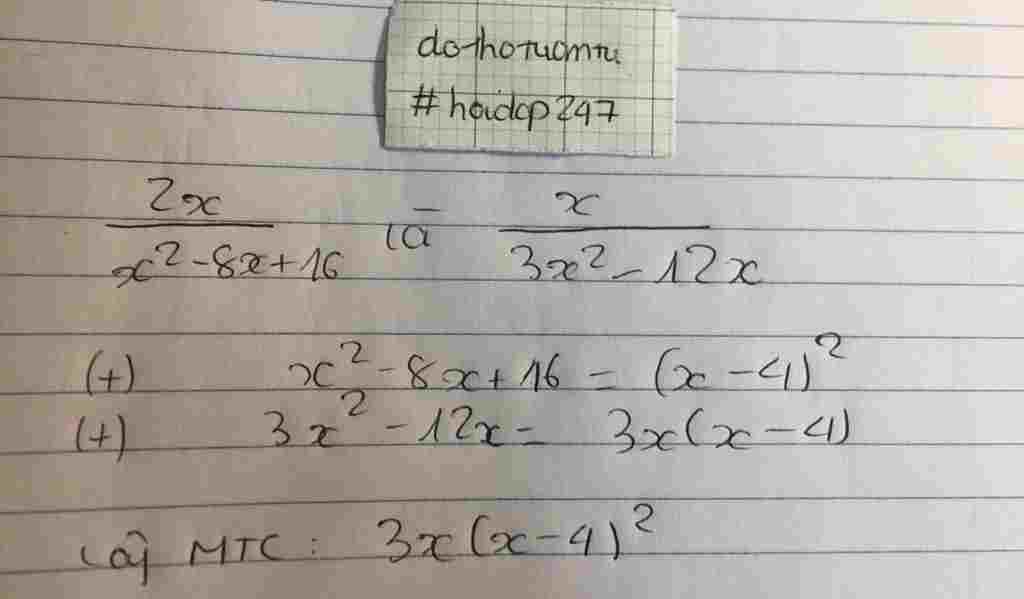 dothotuantu
#hoidap247
2x / x² - 8x + 16 và x / 3x² - 12x
(+) x² - 8x + 16 = (x - 4)²
(+) 3x² - 12x = 3x(x - 4)
MTC: 3x(x - 4)²